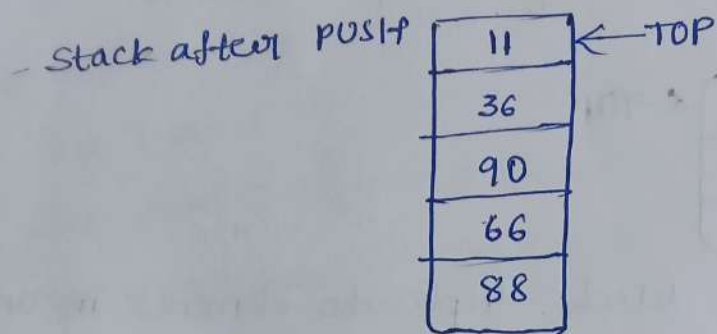 Stack after PUSH
11 ← TOP
36
90
66
88